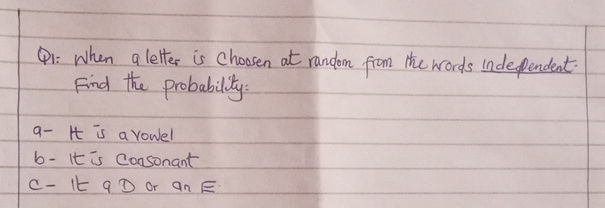 Q1: When a letter is Choosen at random from the words independent.
Find the probability:
a- It is a vowel
b- It is Consonant
c- It a D or an E.